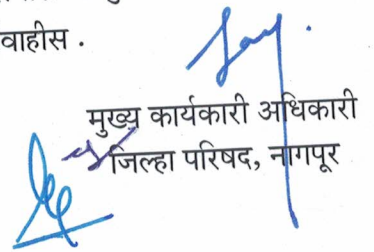 वाहीस .
मुख्य कार्यकारी अधिकारी
जिल्हा परिषद, नागपूर